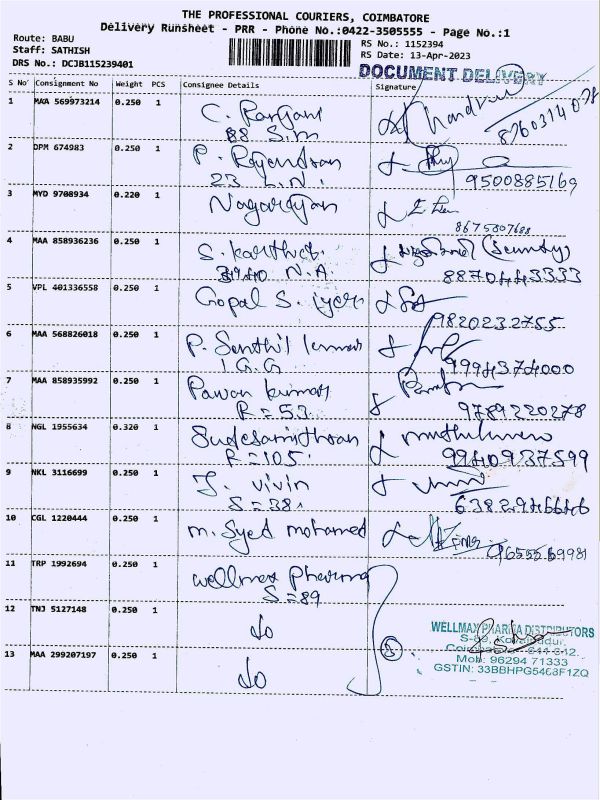 THE PROFESSIONAL COURIERS, COIMBATORE
Delivery Runsheet - PRR - Phone No.:0422-3505555 - Page No.:1
Route: BABU
Staff: SATHISH
DRS No.: DCJB115239401
RS No.: 1152394
RS Date: 13-Apr-2023
DOCUMENT DELIVERY
S No Consignment No Weight PCS Consignee Details Signature
1 MAA 569973214 0.250 1 C. Ranjani
88 S.M
2 DPM 674983 0.250 1 P. Rajendran
23 L.N. 9500885169
3 MYD 9708934 0.220 1 Nagarajan
8675807688
4 MAA 858936236 0.250 1 S. Karthik (Security)
3940 N.A. 8870443333
5 VPL 401336558 0.250 1 Gopal S. iyer
9820232755
6 MAA 568826018 0.250 1 P. Senthil kumar
I.G.G 9994374000
7 MAA 858935992 0.250 1 Pawan kumar
R=53 9789220278
8 NGL 1955634 0.320 1 Sudesamithran
R=105. 9940937599
9 NKL 3116699 0.250 1 J. vivin
S=38
10 CGL 1220444 0.250 1 m. Syed mohamed
9655569981
11 TRP 1992694 0.250 1 wellmax pharma
S=89
12 TNJ 5127148 0.250 1 do
13 MAA 299207197 0.250 1 do
WELLMAX PHARMA DISTRIBUTORS
S-89,
Mob: 96294 71333
GSTIN: 33BBHPG5468F1ZQ